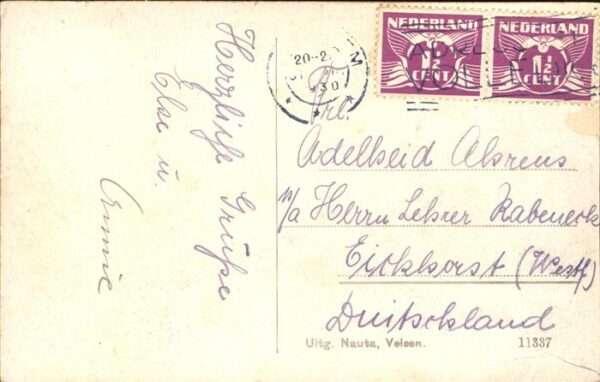 Herzliche Grüße
Else u.
Annie
NEDERLAND
1½
CENT
NEDERLAND
1½
CENT
M
20-2
30
Frl.
Adelheid Ahrens
p/a Herrn Lehrer Rabeneck
Eickhorst (Westf)
Duitschland
Uitg. Nauta, Velsen. 11337